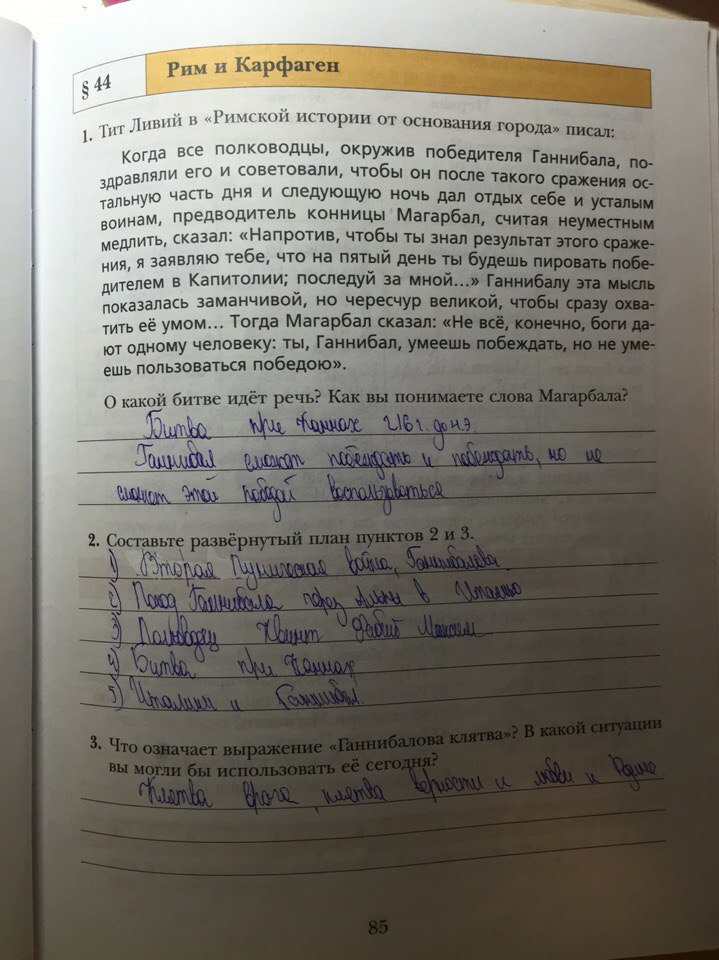 § 44
Рим и Карфаген
1. Тит Ливий в «Римской истории от основания города» писал:
Когда все полководцы, окружив победителя Ганнибала, по-
здравляли его и советовали, чтобы он после такого сражения ос-
тальную часть дня и следующую ночь дал отдых себе и усталым
воинам, предводитель конницы Магарбал, считая неуместным
медлить, сказал: «Напротив, чтобы ты знал результат этого сраже-
ния, я заявляю тебе, что на пятый день ты будешь пировать побе-
дителем в Капитолии; последуй за мной...» Ганнибалу эта мысль
показалась заманчивой, но чересчур великой, чтобы сразу охва-
тить её умом... Тогда Магарбал сказал: «Не всё, конечно, боги да-
ют одному человеку: ты, Ганнибал, умеешь побеждать, но не уме-
ешь пользоваться победою».
О какой битве идёт речь? Как вы понимаете слова Магарбала?
Битва при Каннах 216 г. до н.э.
Ганнибал сможет побеждать и побеждать, но не
сможет этой победой воспользоваться
2. Составьте развёрнутый план пунктов 2 и 3.
1) Вторая Пуническая война, Ганнибалова.
2) Поход Ганнибала через Альпы в Италию
3) Полководец Квинт Фабий Максим
4) Битва при Каннах
5) Италики и Ганнибал.
3. Что означает выражение «Ганнибалова клятва»? В какой ситуации
вы могли бы использовать её сегодня?
Клятва врага, клятва верности и любви к Родине.
85